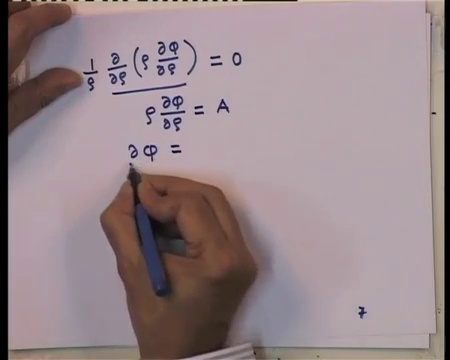 1/ρ ∂/∂ρ (ρ ∂φ/∂ρ) = 0
ρ ∂φ/∂ρ = A
∂φ =
7